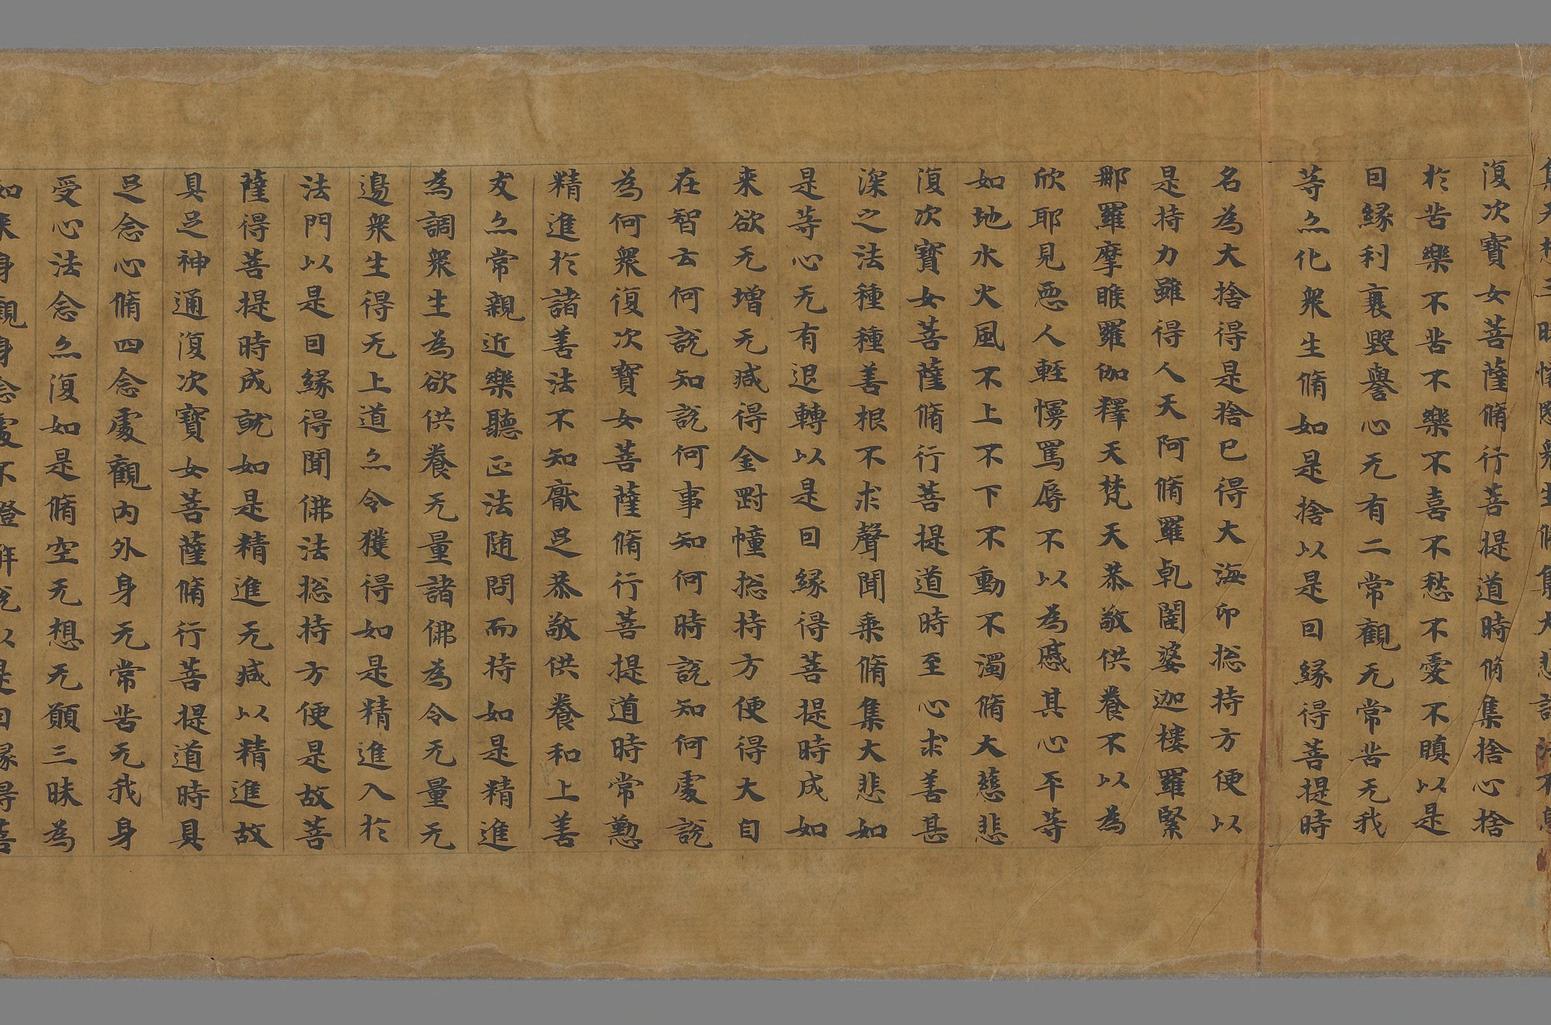 復次寶女菩薩脩行菩提道時脩集捨心捨
於苦樂不苦不樂不喜不愁不憂不瞋以是
因緣利衰毀譽心无有二常觀无常苦无我
等亦化衆生脩如是捨以是因緣得菩提時
名為大捨得是捨已得大海印捴持方便以
是持力雖得人天阿脩羅乹闥婆迦樓羅緊
那羅摩睺羅伽釋天梵天恭敬供養不以為
欣耶見惡人輕慢罵辱不以為慼其心平等
如地水火風不上不下不動不濁脩大慈悲
復次寶女菩薩脩行菩提道時至心求善甚
深之法種種善根不求聲聞乘脩集大悲如
是等心无有退轉以是因緣得菩提時成如
來欲无增无减得金剛幢捴持方便得大自
在智云何說知說何事知何時說知何處說
為何衆復次寶女菩薩脩行菩提道時常懃
精進於諸善法不知厭足恭敬供養和上善
友亦常親近樂聽正法随問而持如是精進
為調衆生為欲供養无量諸佛為令无量无
邊衆生得无上道亦令獲得如是精進入於
法門以是因緣得聞佛法捴持方便是故菩
薩得菩提時成就如是精進无减以精進故
具足神通復次寶女菩薩脩行菩提道時具
足念心脩四念處觀内外身无常苦无我身
受心法念亦復如是脩空无想无願三昧為